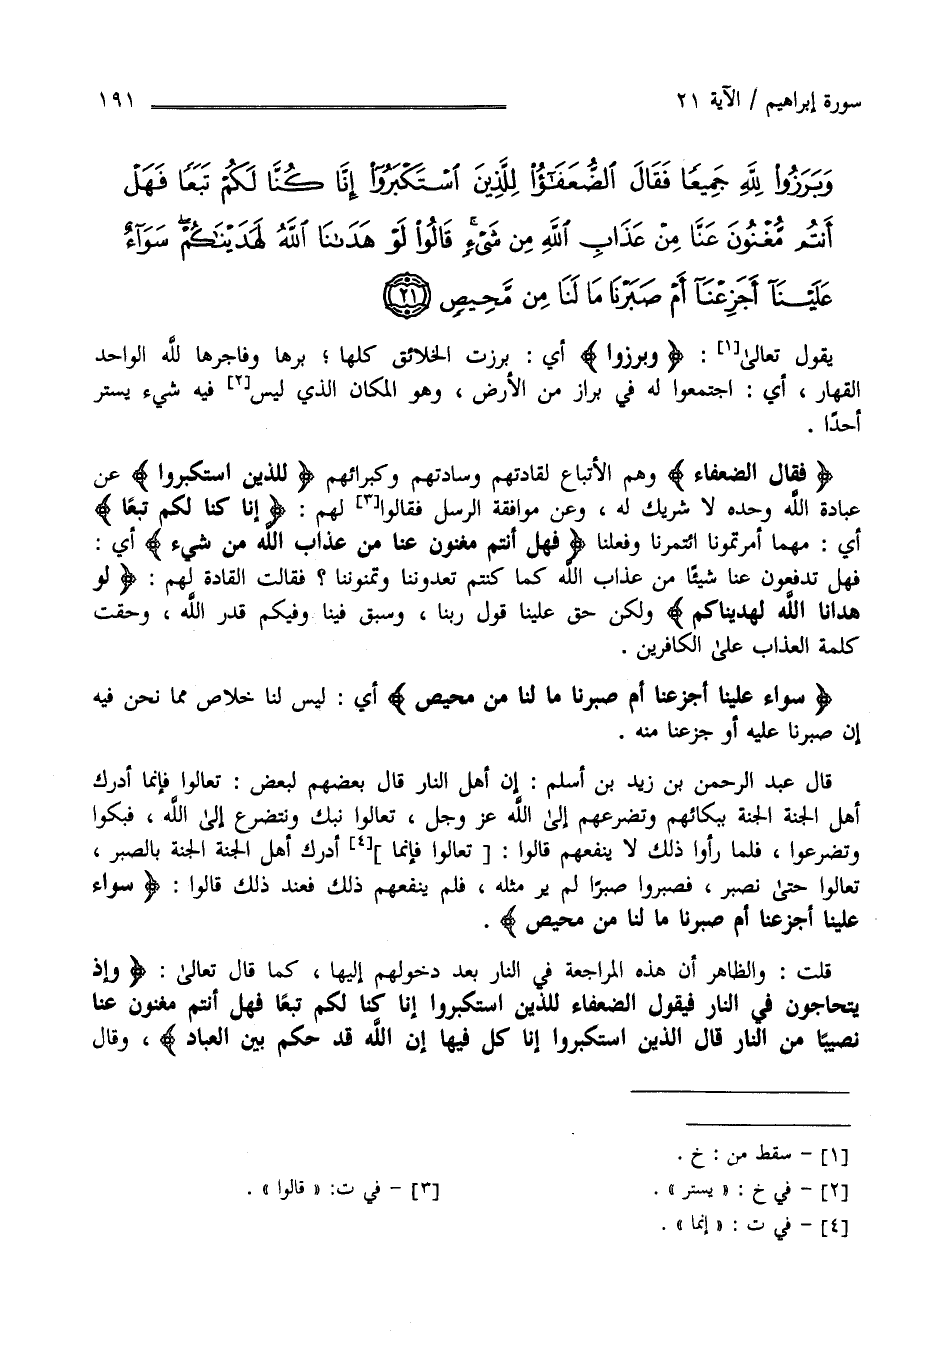 سورة إبراهيم / الآية ٢١ ١٩١
وَبَرَزُوا۟ لِلَّهِ جَمِيعًا فَقَالَ ٱلضُّعَفَـٰٓؤُا۟ لِلَّذِينَ ٱسْتَكْبَرُوٓا۟ إِنَّا كُنَّا لَكُمْ تَبَعًا فَهَلْ
أَنتُم مُّغْنُونَ عَنَّا مِنْ عَذَابِ ٱللَّهِ مِن شَىْءٍۚ قَالُوا۟ لَوْ هَدَىٰنَا ٱللَّهُ لَهَدَيْنَـٰكُمْۖ سَوَآءٌ
عَلَيْنَآ أَجَزِعْنَآ أَمْ صَبَرْنَا مَا لَنَا مِن مَّحِيصٍ ﴿٢١﴾
يقول تعالىٰ[١] : ﴿ وبرزوا ﴾ أي : برزت الخلائق كلها ؛ برها وفاجرها للَّه الواحد
القهار ، أي : اجتمعوا له في براز من الأرض ، وهو المكان الذي ليس[٢] فيه شيء يستر
أحدًا .
﴿ فقال الضعفاء ﴾ وهم الأتباع لقادتهم وسادتهم وكبرائهم ﴿ للذين استكبروا ﴾ عن
عبادة اللَّه وحده لا شريك له ، وعن موافقة الرسل فقالوا[٣] لهم : ﴿ إنا كنا لكم تبعًا ﴾
أي : مهما أمرتمونا ائتمرنا وفعلنا ﴿ فهل أنتم مغنون عنا من عذاب اللَّه من شيء ﴾ أي :
فهل تدفعون عنا شيئًا من عذاب اللَّه كما كنتم تعدوننا وتمنوننا ؟ فقالت القادة لهم : ﴿ لو
هدانا اللَّه لهديناكم ﴾ ولكن حق علينا قول ربنا ، وسبق فينا وفيكم قدر اللَّه ، وحقت
كلمة العذاب علىٰ الكافرين .
﴿ سواء علينا أجزعنا أم صبرنا ما لنا من محيص ﴾ أي : ليس لنا خلاص مما نحن فيه
إن صبرنا عليه أو جزعنا منه .
قال عبد الرحمن بن زيد بن أسلم : إن أهل النار قال بعضهم لبعض : تعالوا فإنما أدرك
أهل الجنة الجنة ببكائهم وتضرعهم إلىٰ اللَّه عز وجل ، تعالوا نبك ونتضرع إلىٰ اللَّه ، فبكوا
وتضرعوا ، فلما رأوا ذلك لا ينفعهم قالوا : [ تعالوا فإنما ][٤] أدرك أهل الجنة الجنة بالصبر ،
تعالوا حتىٰ نصبر ، فصبروا صبرًا لم ير مثله ، فلم ينفعهم ذلك فعند ذلك قالوا : ﴿ سواء
علينا أجزعنا أم صبرنا ما لنا من محيص ﴾ .
قلت : والظاهر أن هذه المراجعة في النار بعد دخولهم إليها ، كما قال تعالىٰ : ﴿ وإذ
يتحاجون في النار فيقول الضعفاء للذين استكبروا إنا كنا لكم تبعًا فهل أنتم مغنون عنا
نصيبًا من النار قال الذين استكبروا إنا كل فيها إن اللَّه قد حكم بين العباد ﴾ ، وقال
[١] – سقط من : خ .
[٢] – في خ : « يستر » . [٣] – في ت: « قالوا » .
[٤] – في ت : « إنما » .